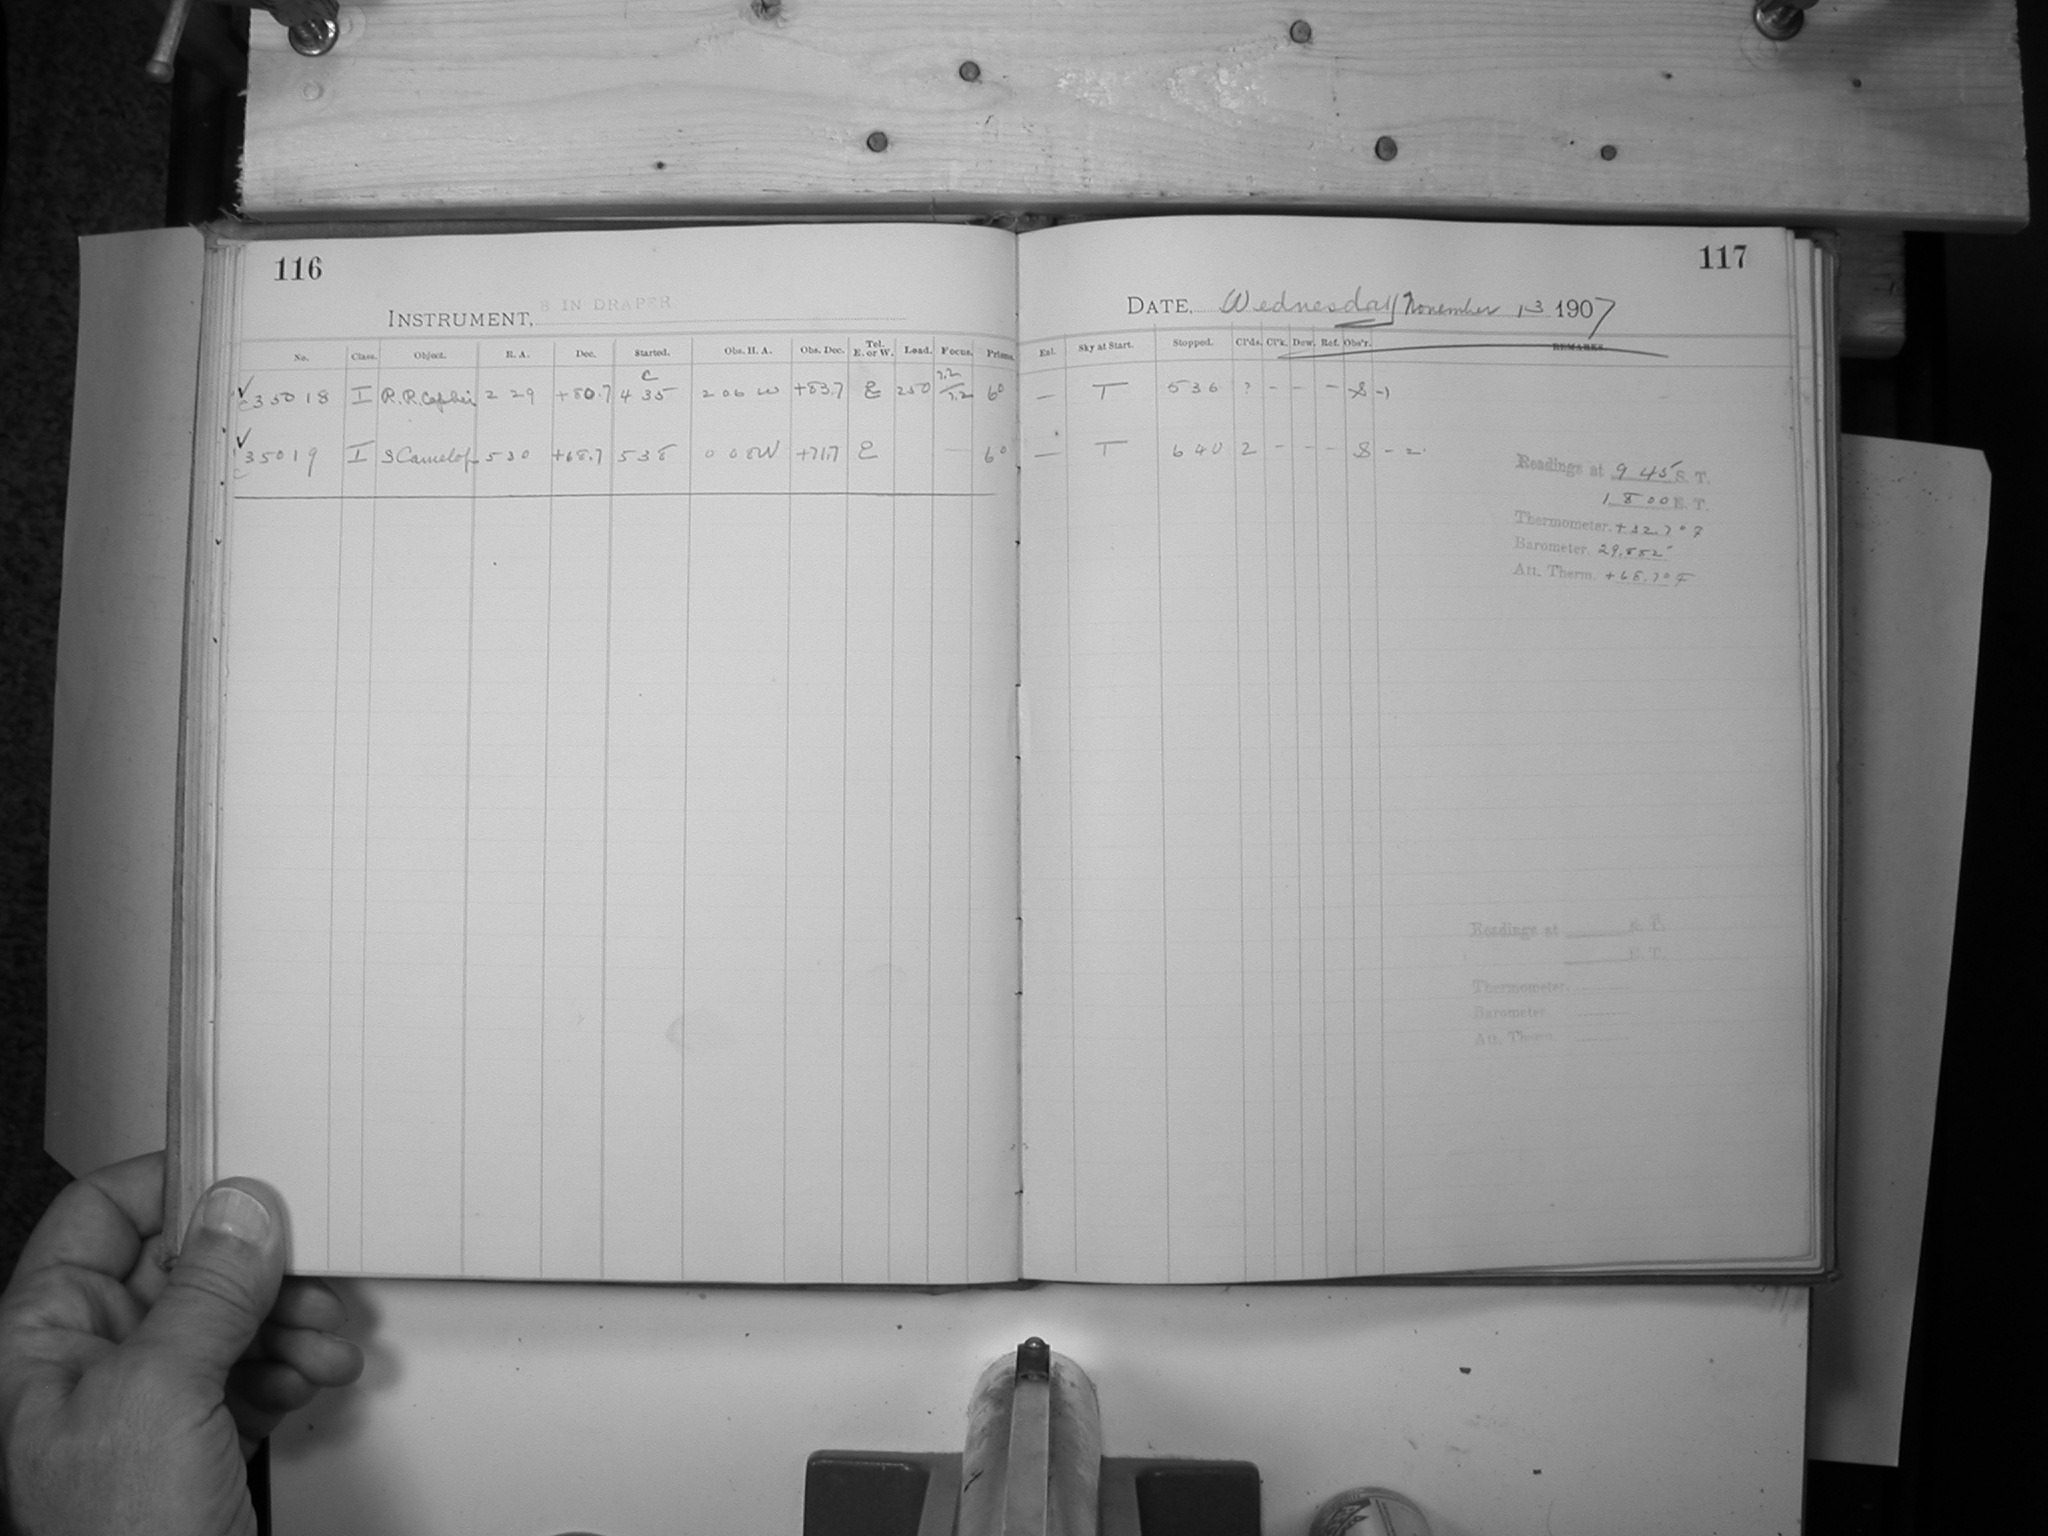 116
INSTRUMENT, 8 IN DRAPER
No. Class. Object. R. A. Dec. Started. Obs. H. A. Obs. Dec. Tel. E. or W. Load. Focus. Prisms.
√ c 35018 I R.R. Cephei 2 29 +80.7 c 4 35 2 06 W +83.7 E 250 7.2/7.2 60
√ c 35019 I S Camelop 5 30 +68.7 5 38 0 08W +71.7 E — 60
117
DATE, Wednesday November 13 1907
Sky at Start. Stopped. Cl'ds. Cl'k. Dew. Ref. Obs'r. REMARKS.
— T 5 36 ? - - - S -1
— T 6 40 2 - - - S - 2
Readings at 9 45 S. T.
18 00 E. T.
Thermometer. +32.7° F
Barometer.
Att. Therm. +68.7° F
Readings at S. T.
E. T.
Thermometer.
Barometer
Att. Therm.